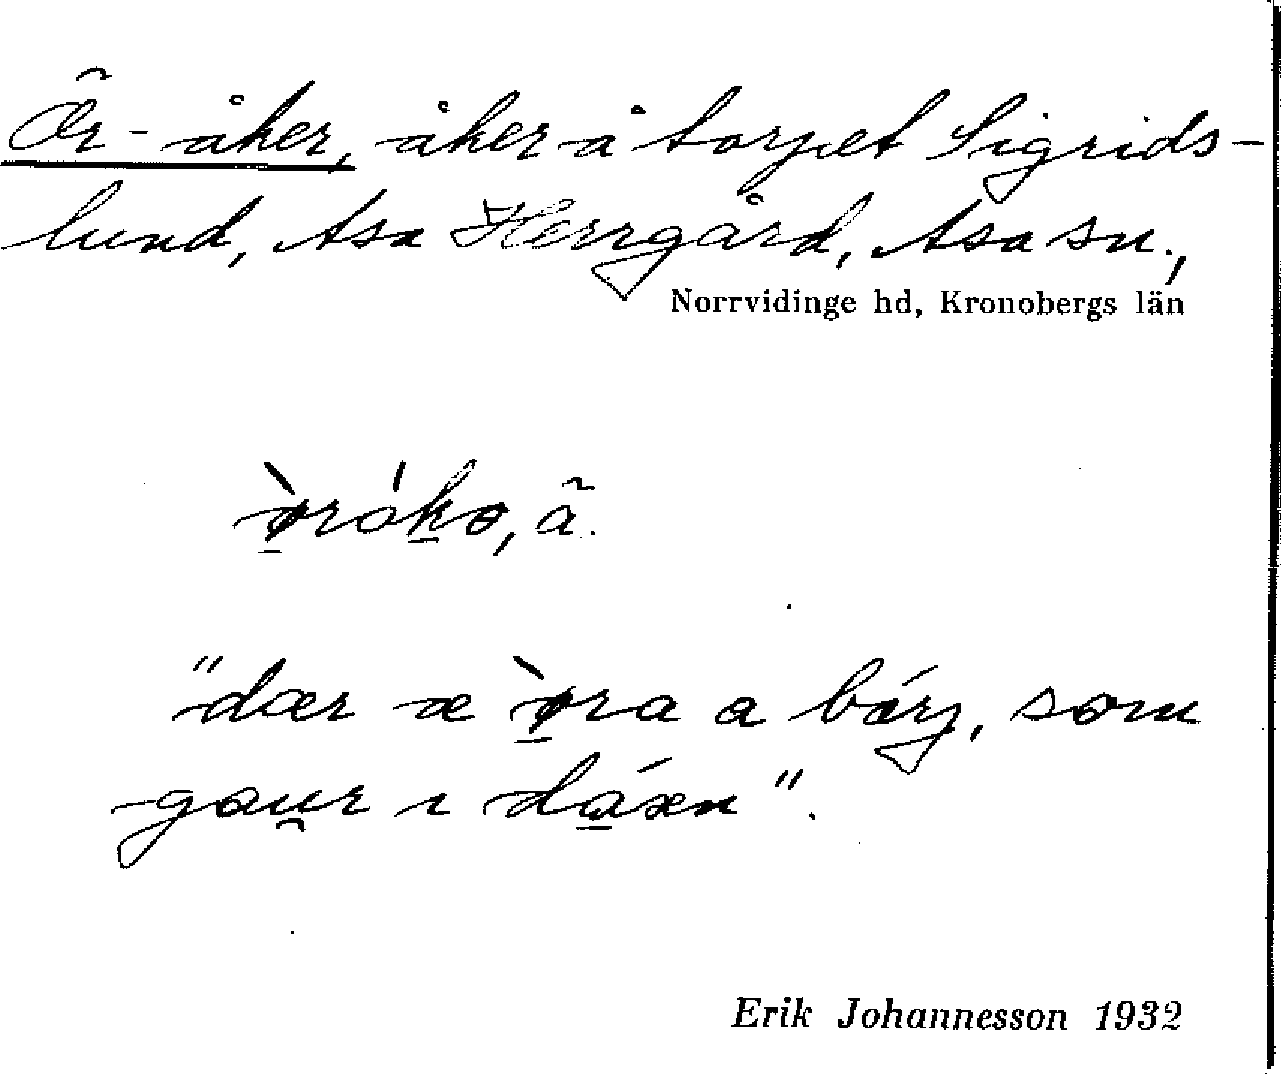 Ör-åker, åker å torpet Sigrids-
lund, Asa Herrgård, Asa sn.,
Norrvidinge hd, Kronobergs län
ø̱̀råḵ́ə, ã.
"dær æ ø̱̀ra a bǽrj, som
gau̯r ı dá̱æn".
Erik Johannesson 1932